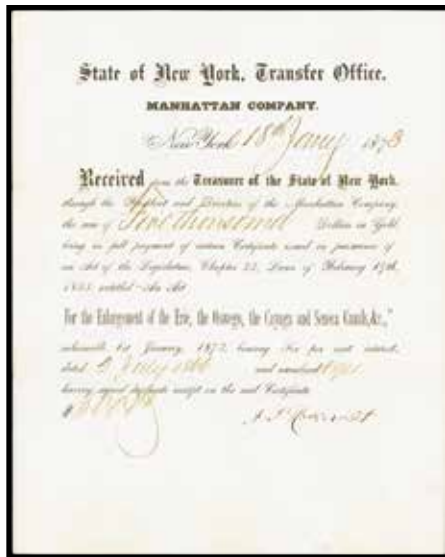 State of New York, Transfer Office.
MANHATTAN COMPANY.
New York 18th Jany 1873
Received from the Treasurer of the State of New York,
through the President and Directors of the Manhattan Company,
the sum of Five thousand Dollars in Gold,
being in full payment of certain Certificate issued in pursuance of
an Act of the Legislature, Chapter 22, Laws of February 17th,
entitled "An Act
For the Enlargement of the Erie, the Oswego, the Cayuga and Seneca Canals, &c.,"
redeemable 1st January, 1873, bearing Six per cent interest,
dated and numbered
having signed duplicate receipt on the said Certificate
$